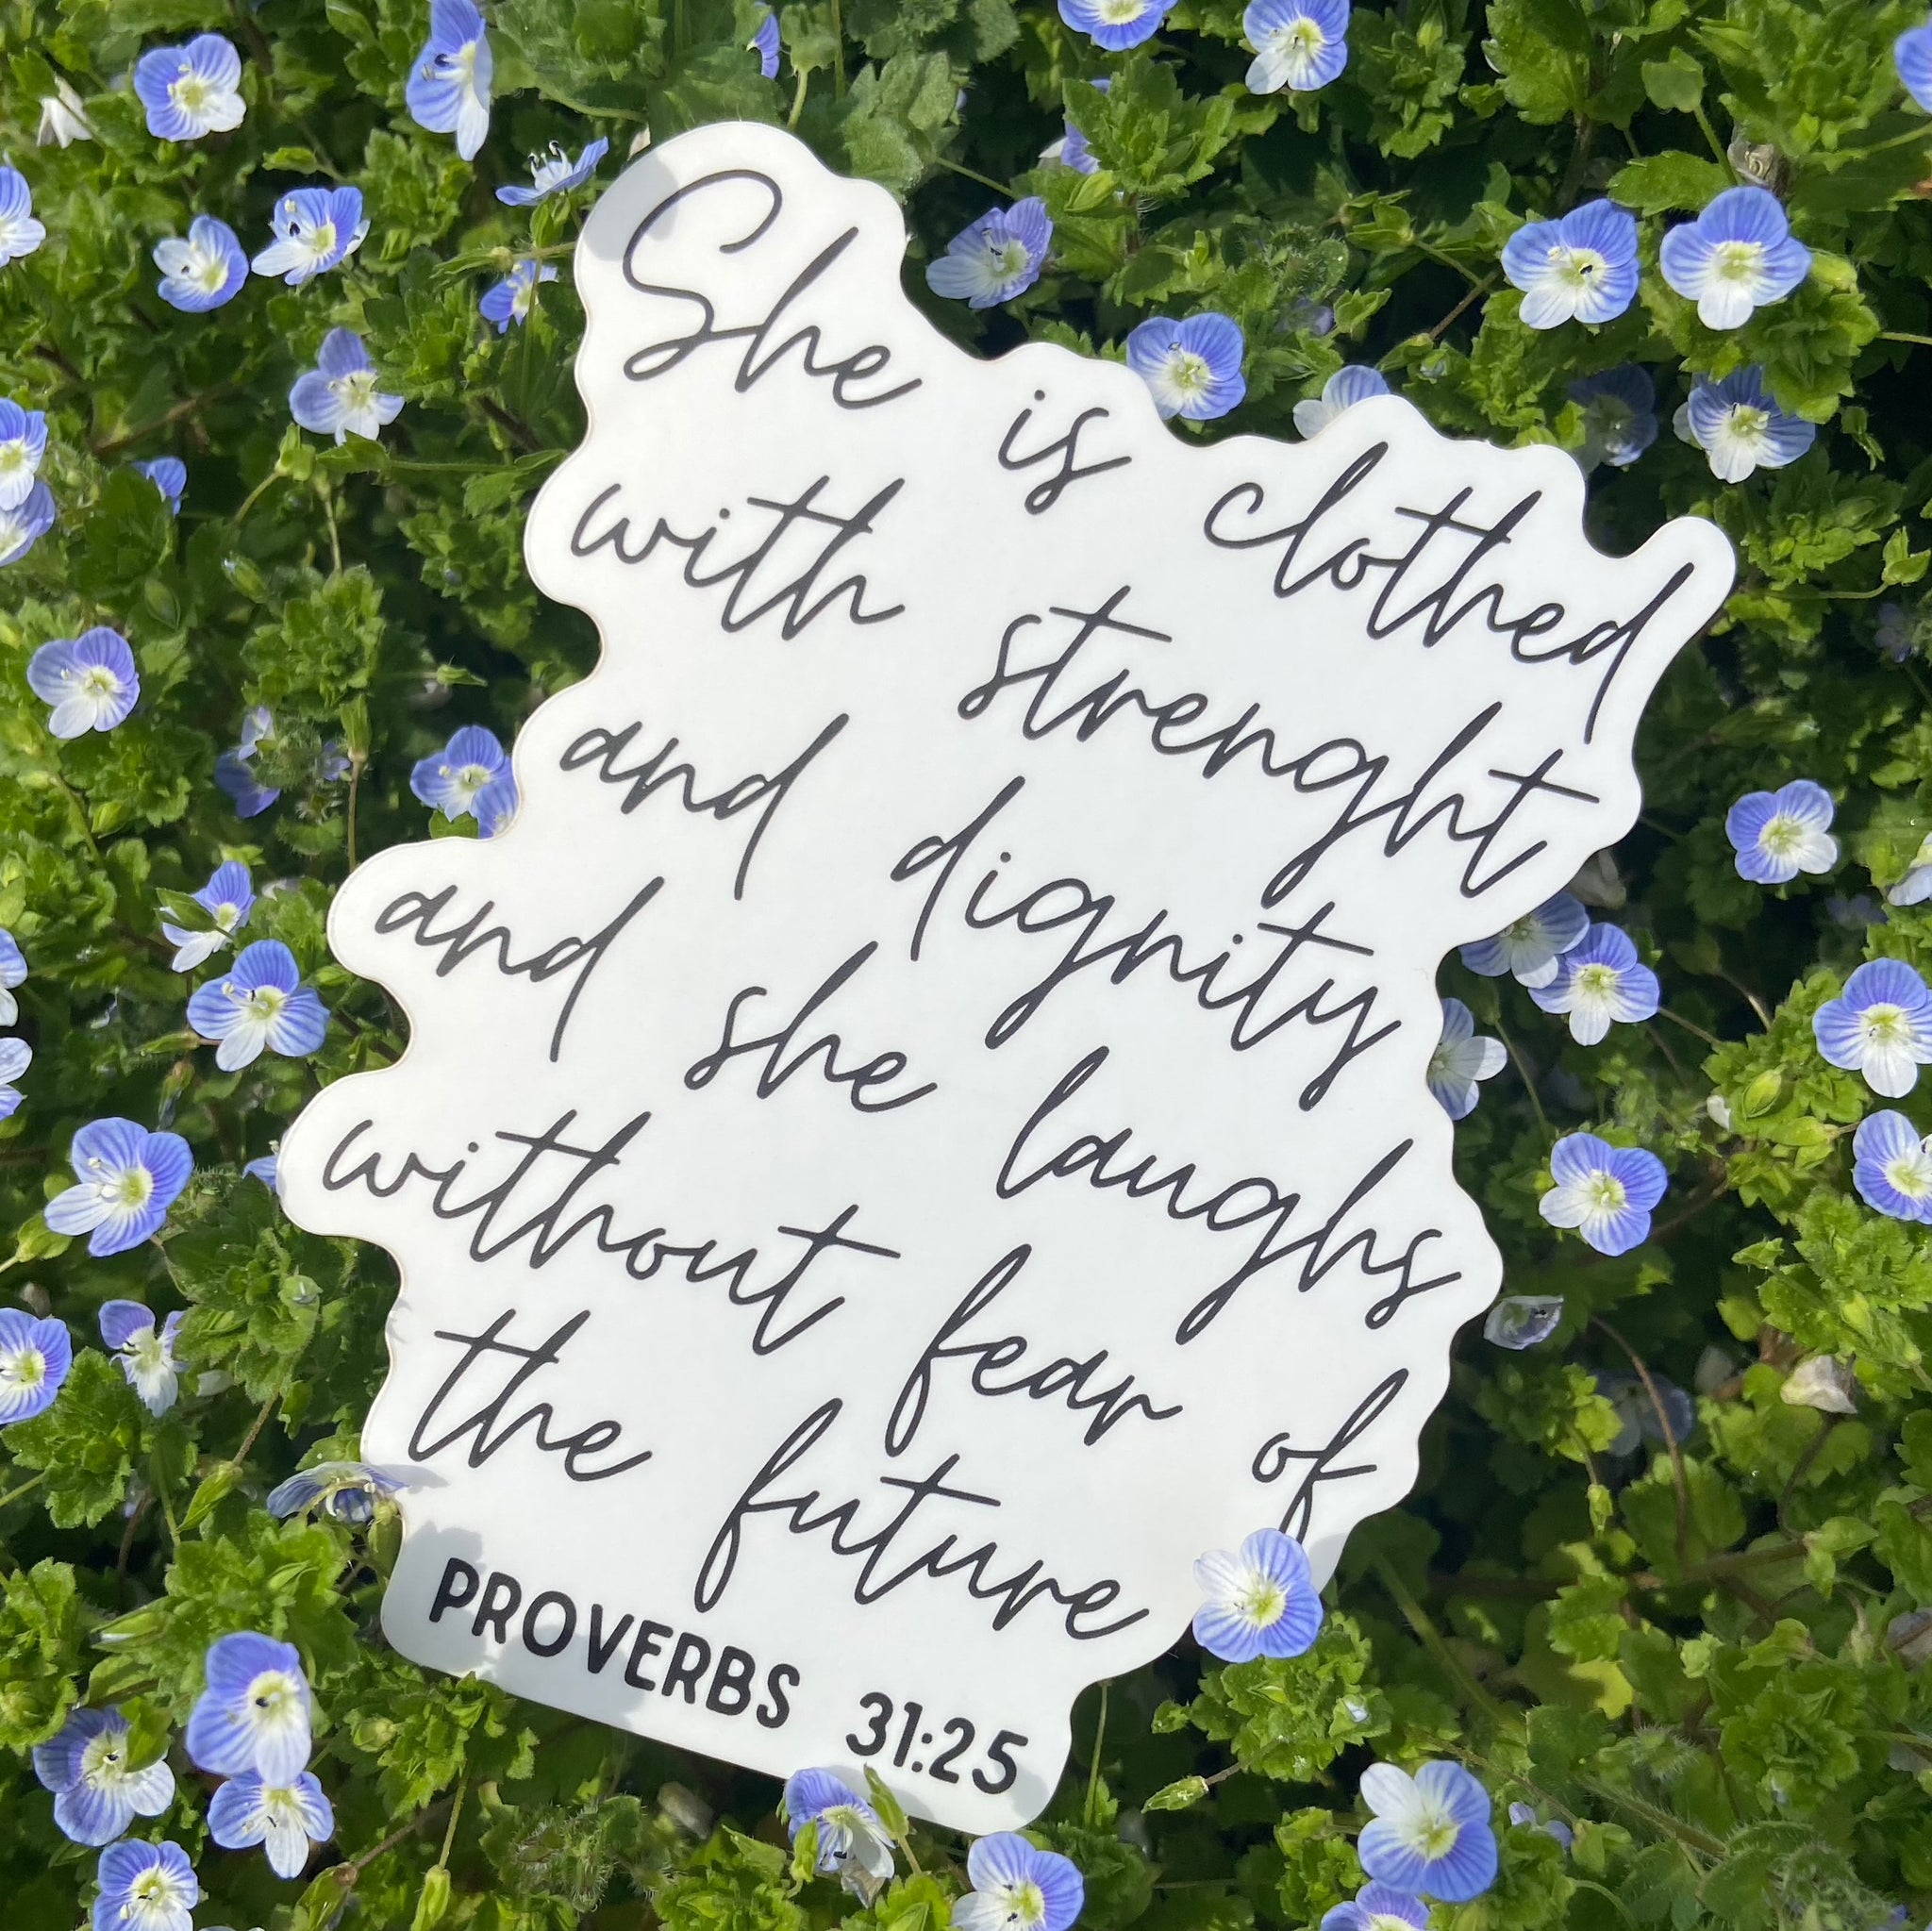 She is clothed
with strenght
and dignity
and she laughs
without fear of
the future
PROVERBS 31:25